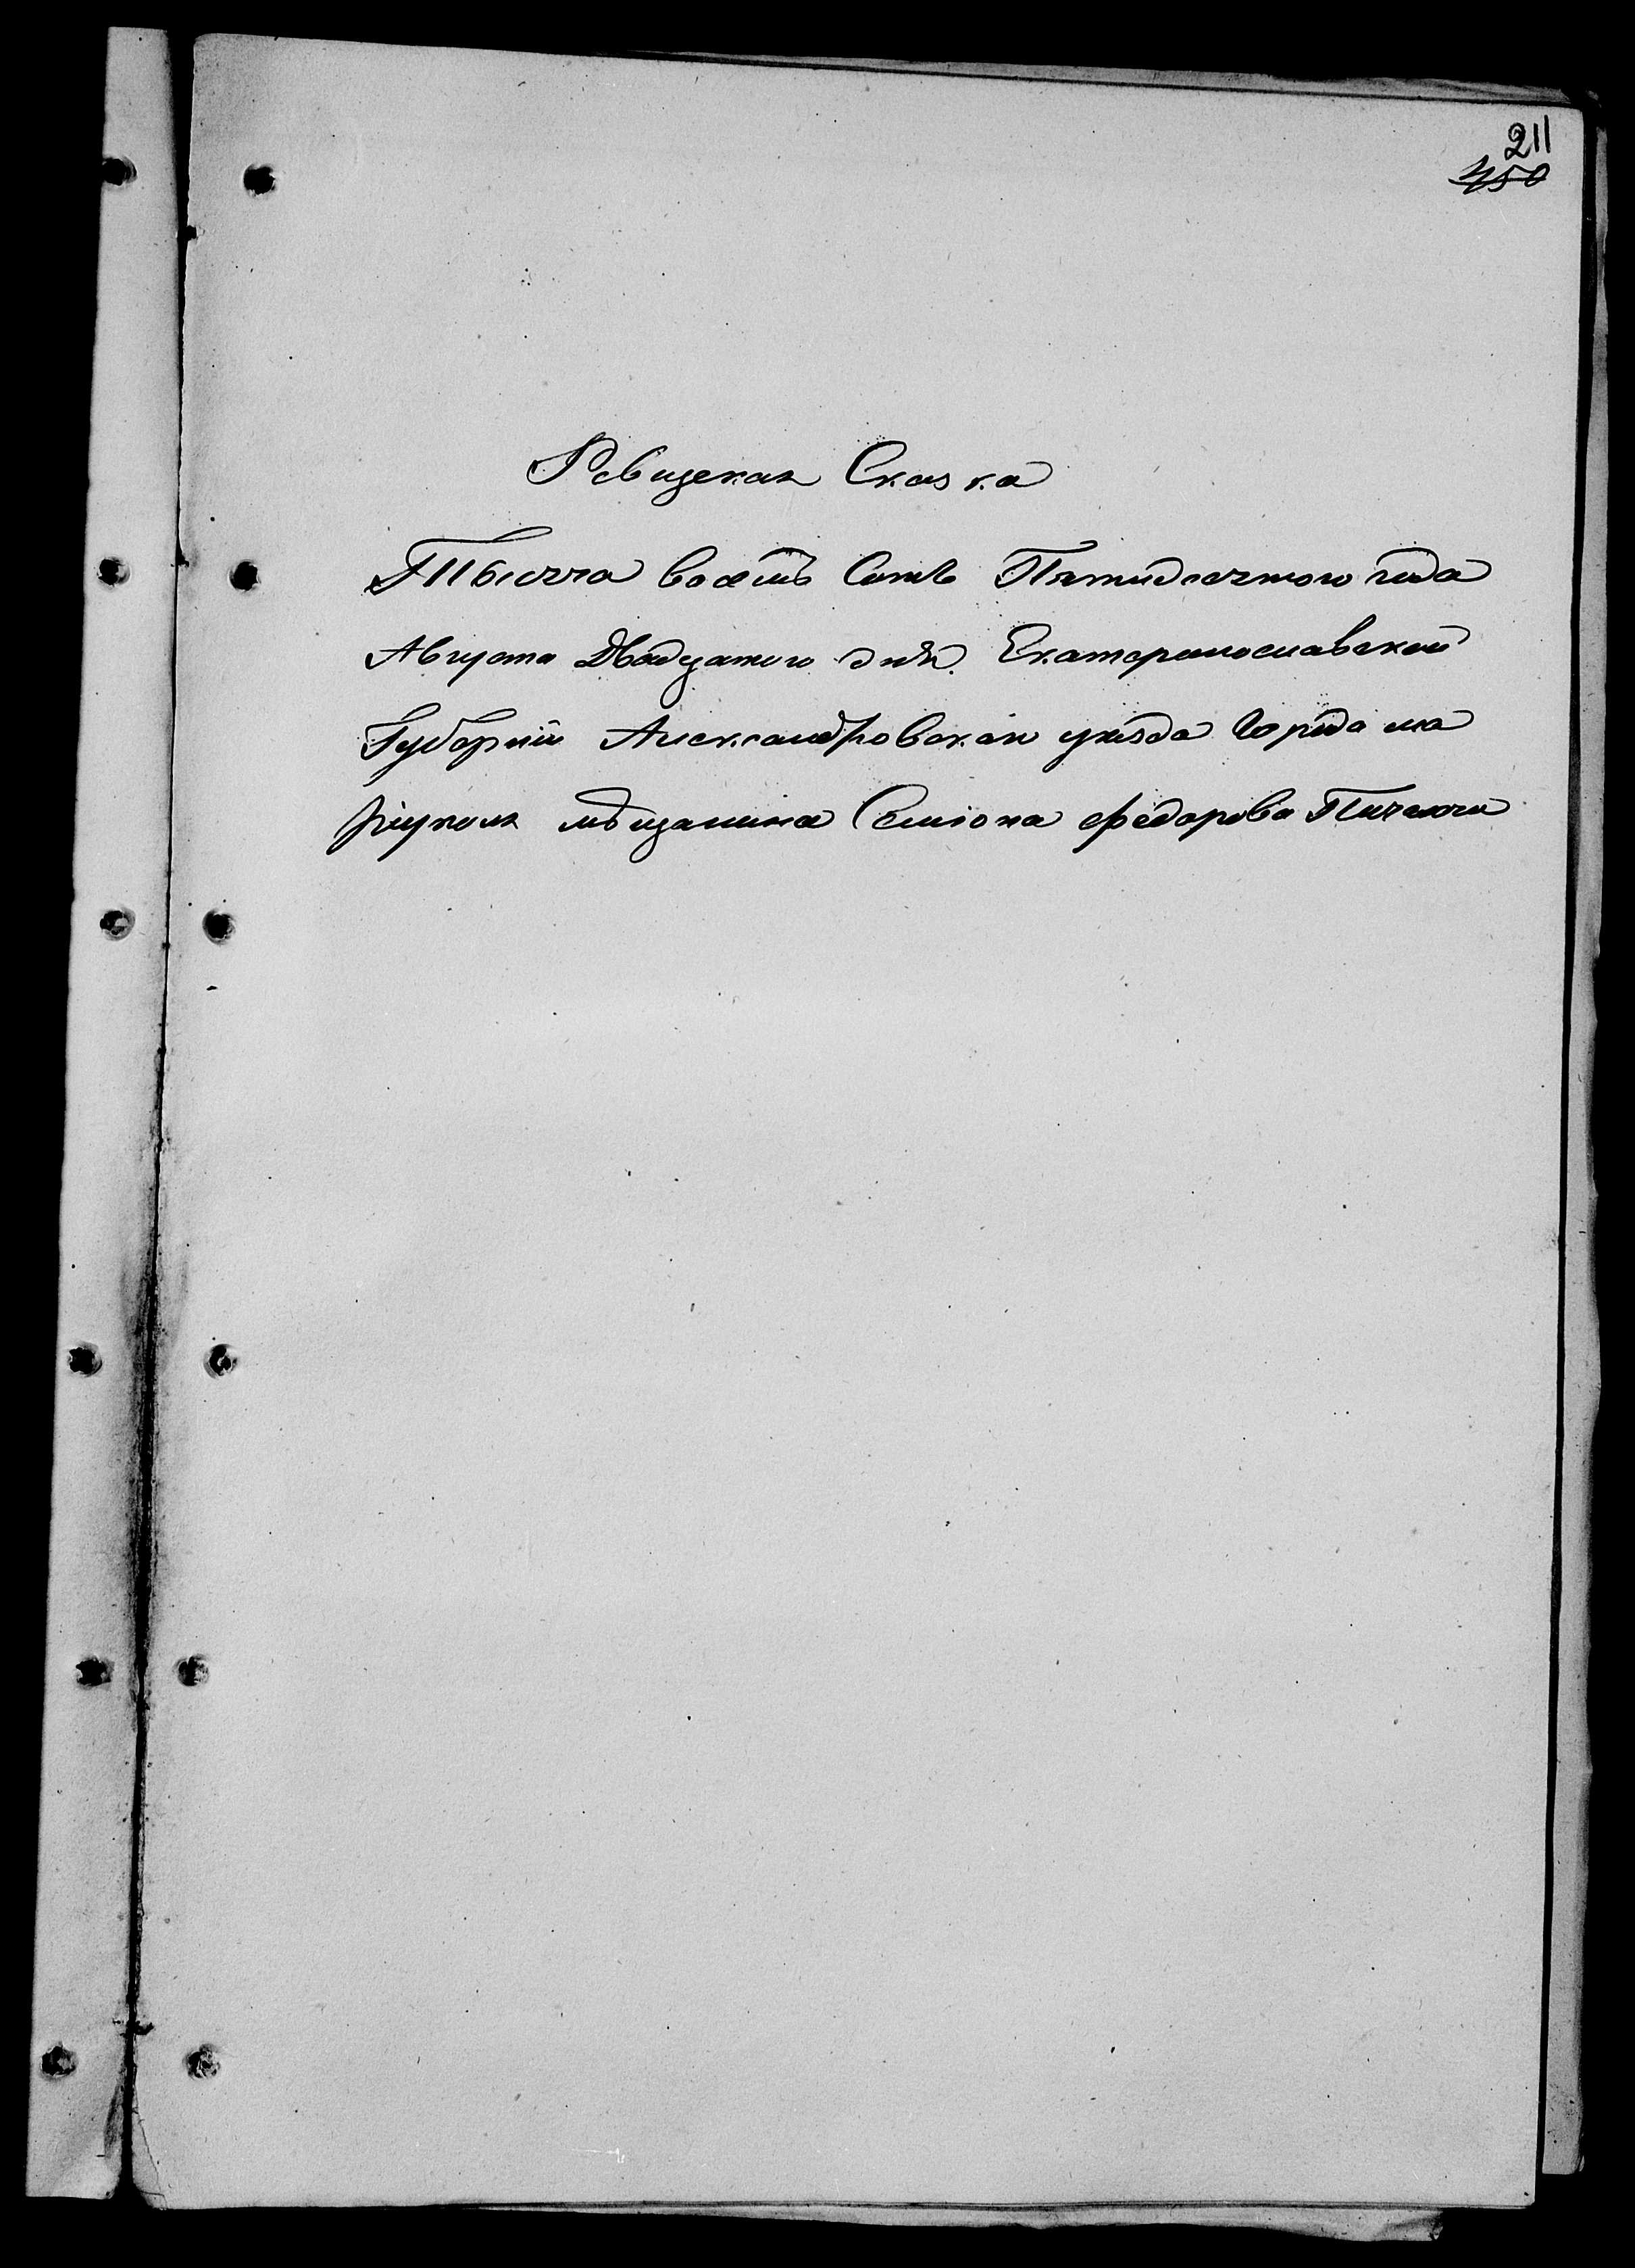 211
450
Ревизская Сказка
Тысяча восемь Сотъ Пятидесятого года
Августа Двадцатого дня Екатеринославской
Губернии Александровскаго уезда Города Ма
риуполя мѣщанина Семіона Федорова